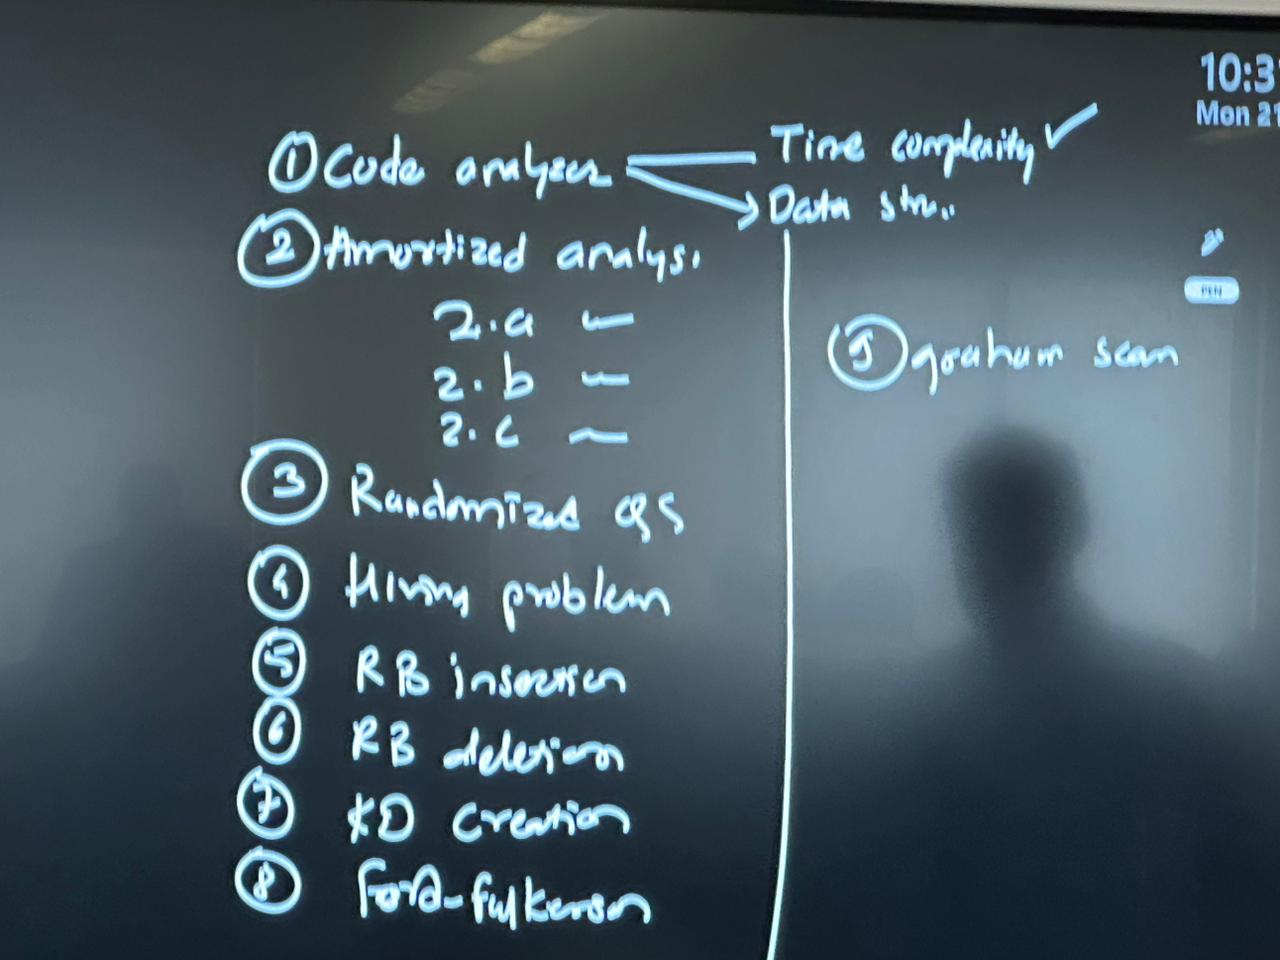 ① Code analyses Time complexity ✓
Data str..
② Amortized analysi
2.a –
2.b –
2.c –
③ Randomized QS
④ Hiring problem
⑤ RB insertion
⑥ RB deletion
⑦ KD Creation
⑧ Ford-fulkerson
⑨ graham scan
10:3
Mon 21
PEN